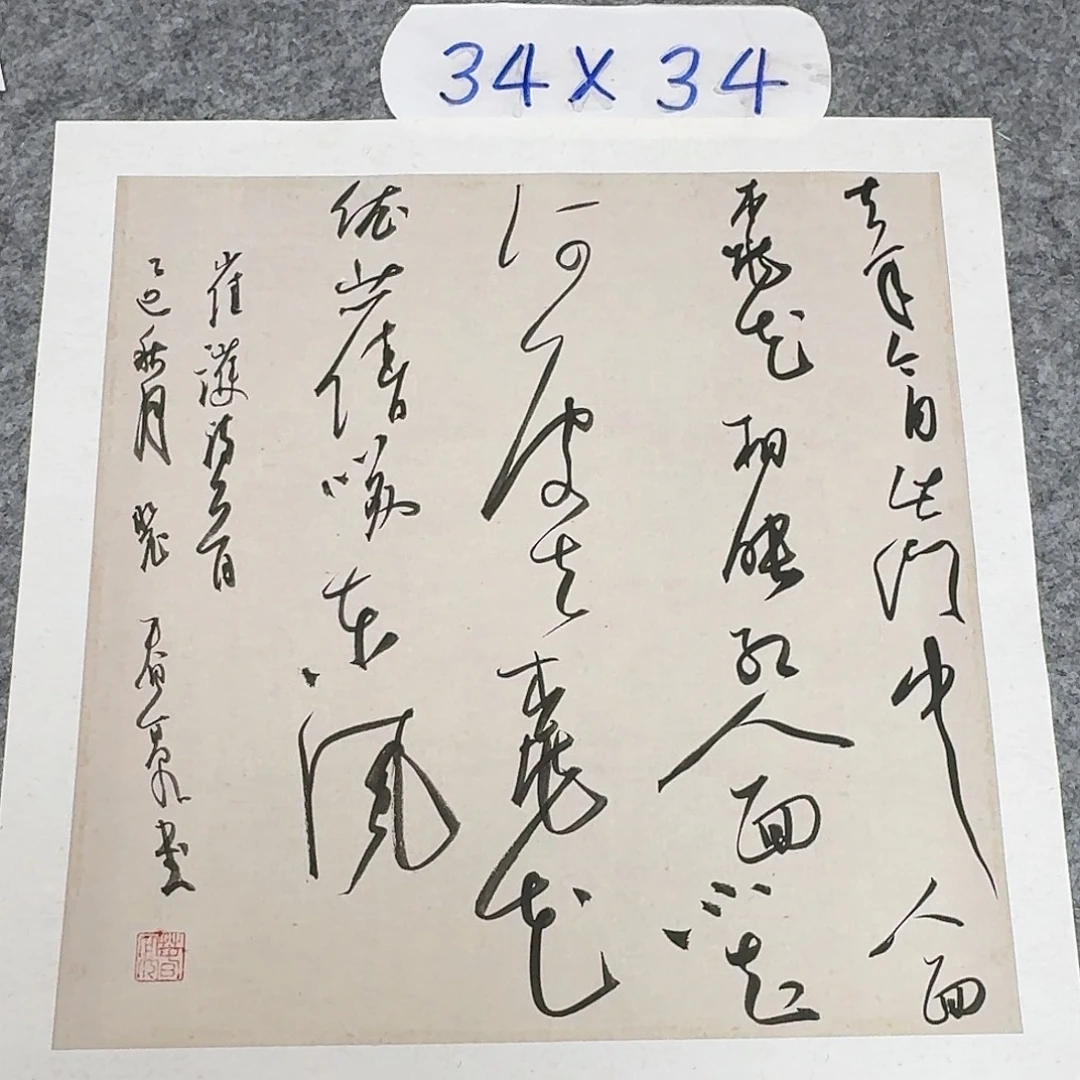 34×34
去年今日此門中人面
桃花相映紅人面不知
何處去桃花
依舊笑東風
崔護詩一首
乙巳秋月 書